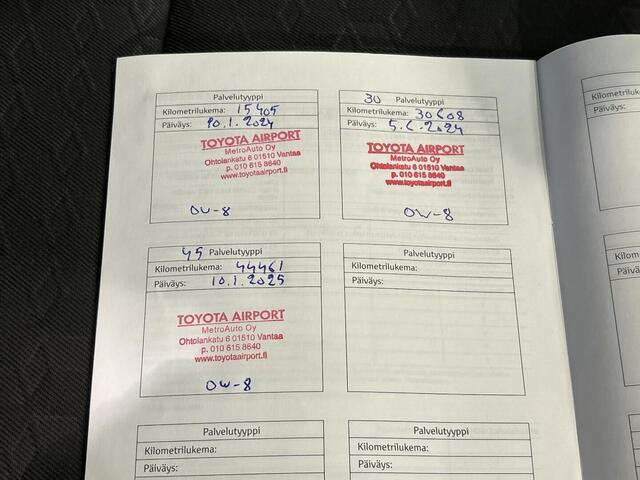 Palvelutyyppi
Kilometrilukema: 15405
Päiväys: 10.1.2024
TOYOTA AIRPORT
MetroAuto Oy
Ohtolankatu 6 01510 Vantaa
p. 010 615 8640
www.toyotaairport.fi
OW-8
30 Palvelutyyppi
Kilometrilukema: 30608
Päiväys: 5.6.2024
TOYOTA AIRPORT
MetroAuto Oy
Ohtolankatu 6 01510 Vantaa
p. 010 615 8640
www.toyotaairport.fi
OW-8
45 Palvelutyyppi
Kilometrilukema: 44461
Päiväys: 10.1.2025
TOYOTA AIRPORT
MetroAuto Oy
Ohtolankatu 6 01510 Vantaa
p. 010 615 8640
www.toyotaairport.fi
OW-8
Palvelutyyppi
Kilometrilukema:
Päiväys:
Palvelutyyppi
Kilometrilukema:
Päiväys:
Palvelutyyppi
Kilometrilukema:
Päiväys:
Päiväys:
Päiväys: